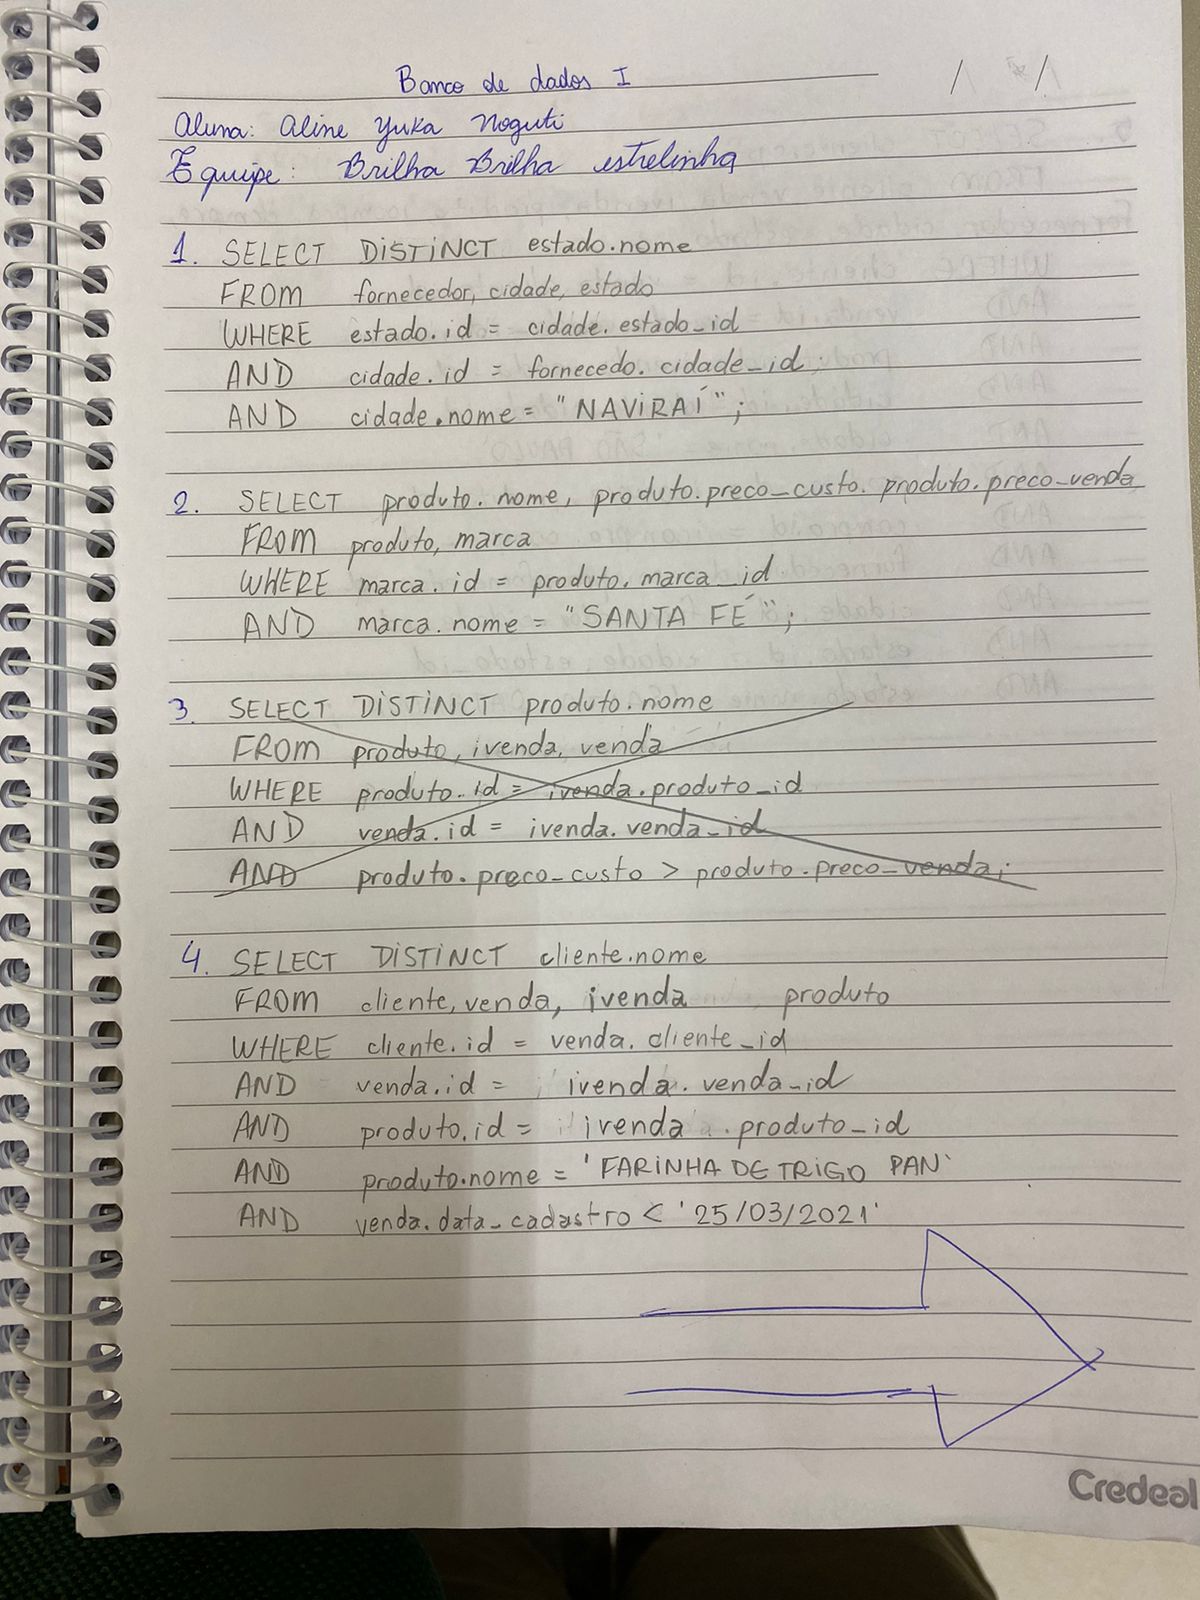 Banco de dados I / /
Aluna: Aline Yuka Noguti
Equipe: Brilha Brilha estrelinha
1. SELECT DISTINCT estado.nome
FROM fornecedor, cidade, estado
WHERE estado.id = cidade.estado_id
AND cidade.id = fornecedo.cidade_id;
AND cidade.nome = "NAVIRAÍ";
2. SELECT produto.nome, produto.preco_custo. produto.preco_venda
FROM produto, marca
WHERE marca.id = produto.marca_id
AND marca.nome = "SANTA FÉ";
3. SELECT DISTINCT produto.nome
FROM produto, ivenda, venda
WHERE produto.id = ivenda.produto_id
AND venda.id = ivenda.venda_id
AND produto.preco_custo > produto.preco_venda;
4. SELECT DISTINCT cliente.nome
FROM cliente, venda, ivenda , produto
WHERE cliente.id = venda.cliente_id
AND venda.id = ivenda.venda_id
AND produto.id = ivenda.produto_id
AND produto.nome = 'FARINHA DE TRIGO PAN'
AND venda.data_cadastro < '25/03/2021'
Credeal